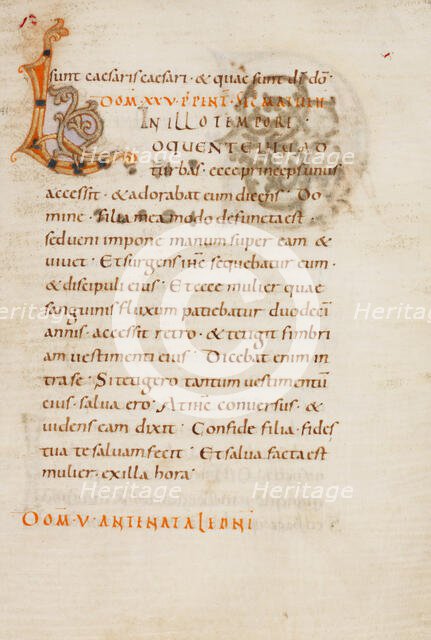 sunt caesaris caesari · & quae sunt dī dō
DOM̄ · XXV · P PENT̄ · SC̄D MATHEŪ
IN ILLO TEMPORE
LOQUENTE IHU AD
turbas · ecce princeps unus
accessit · & adorabat eum dicens · Do
mine · filia mea modo defuncta est ·
sed ueni impone manum super eam · &
uiuet · Et surgens ihc̄ sequebatur eum ·
& discipuli eius · Et ecce mulier quae
sanguinis fluxum patiebatur duodeci
annis · accessit retro · & tetigit fimbri
am uestimenti eius · Dicebat enim in
tra se · Si tetigero tantum uestimentū
eius · salua ero · At ihc̄ conuersus · &
uidens eam dixit · Confide filia · fides
tua te saluam fecit · Et salua facta est
mulier · ex illa hora ·
DOM̄ · V · ANTE NATALE DNI